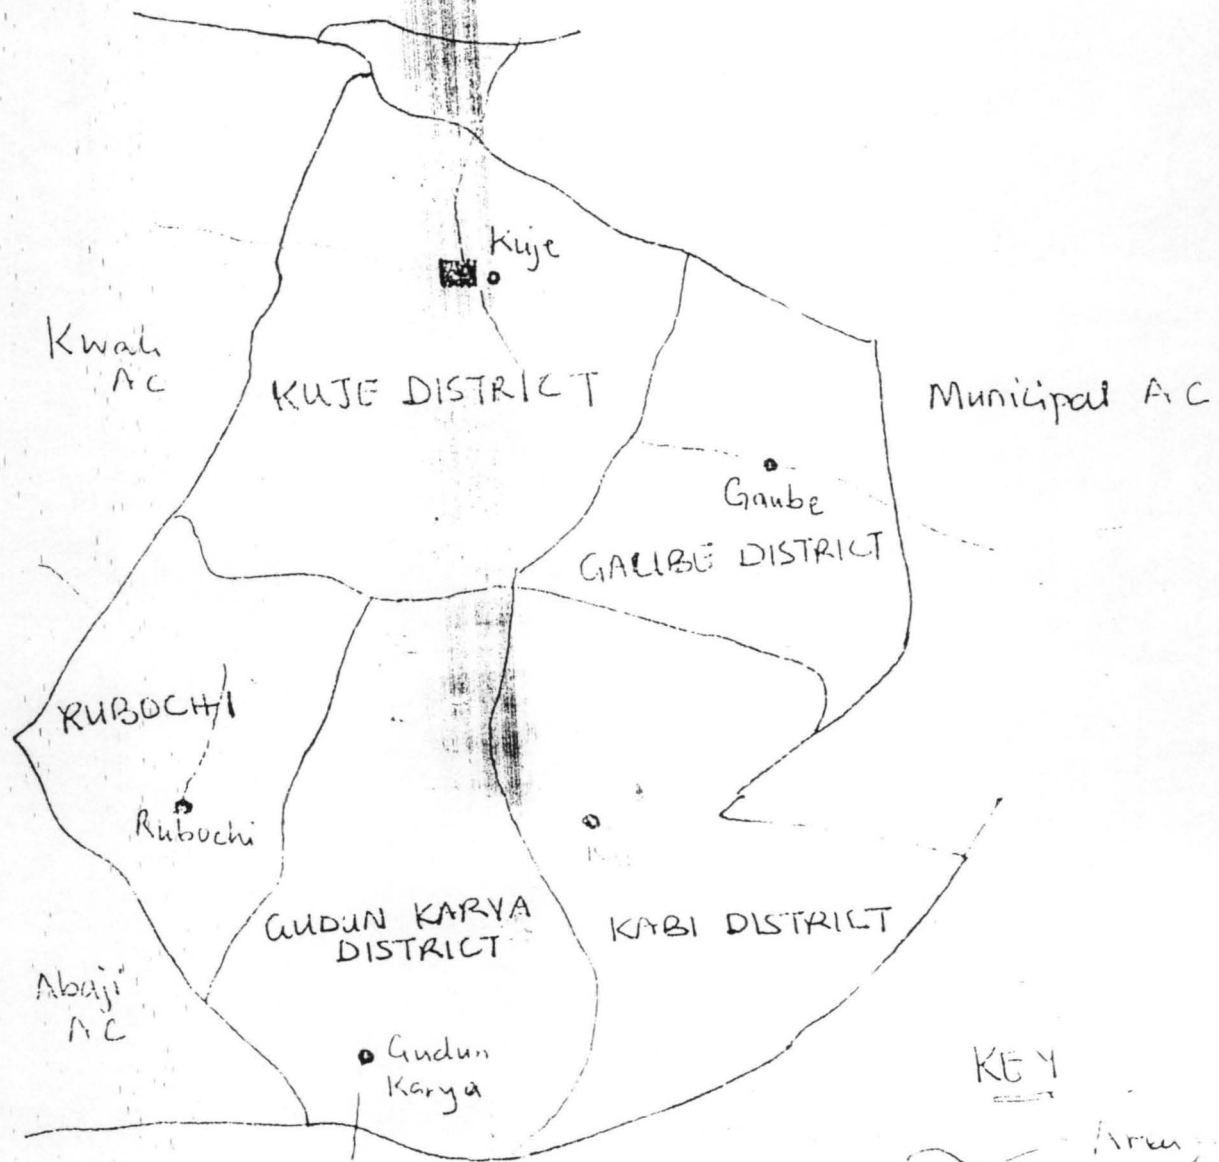 Kuje
Kwali
AC
KUJE DISTRICT
Municipal A C
Gaube
GAUBE DISTRICT
RUBOCHI
Rubochi
GUDUN KARYA
DISTRICT
KABI DISTRICT
Abaji
AC
Gudun
Karya
KEY